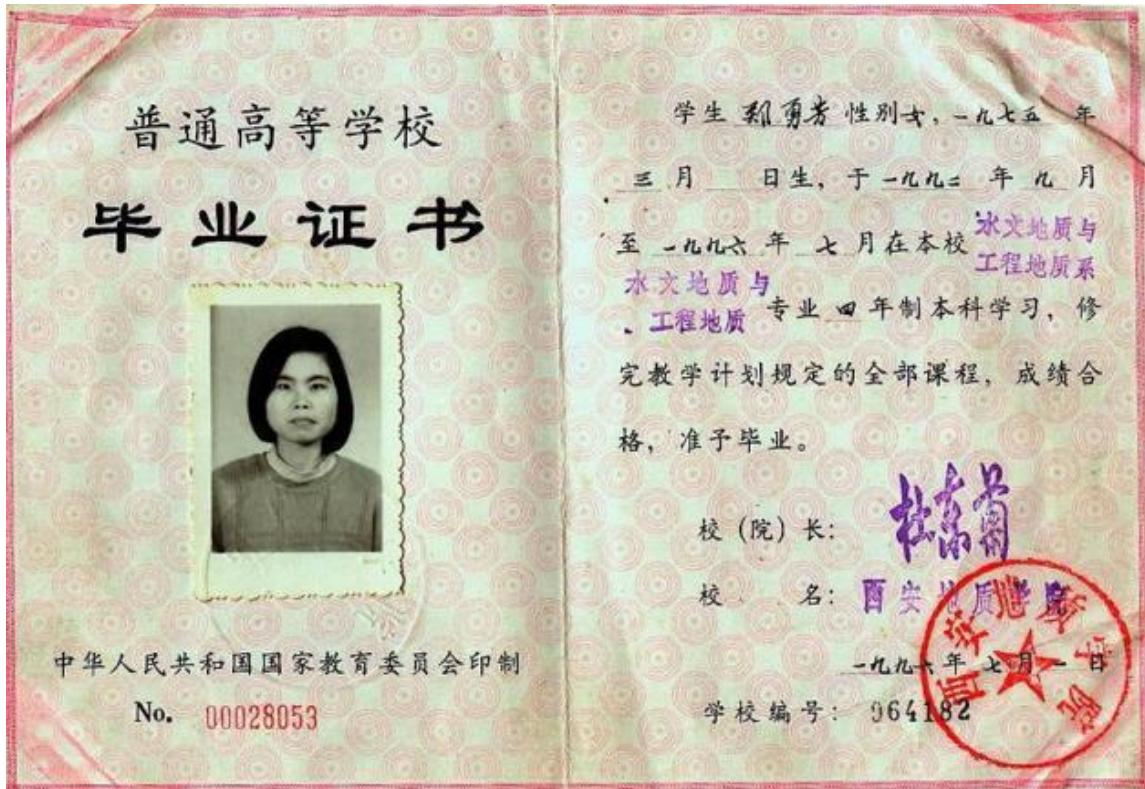 普通高等学校
毕业证书
中华人民共和国国家教育委员会印制
No. 00028053
学生 郑勇芳 性别女,一九七五 年
三 月 日生,于 一九九二 年 九 月
至 一九九六 年 七 月在本校 水文地质与工程地质系
水文地质与工程地质 专业 四 年制本科学习,修
完教学计划规定的全部课程,成绩合
格,准予毕业。
校(院)长:
校 名:西安地质学院
一九九六 年 七 月 一 日
学校编号: 964182
西安地质学院